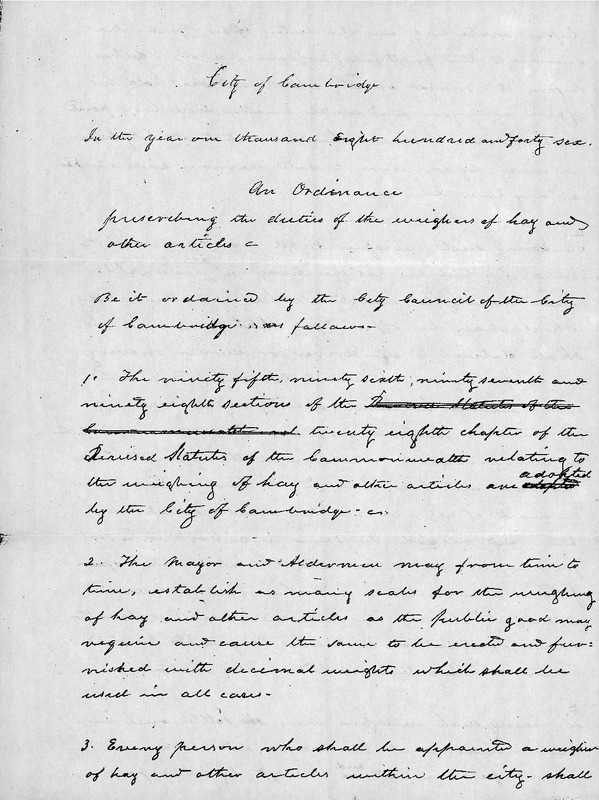 City of Cambridge
In the year one thousand Eight hundred and forty sex.
An Ordinance
prescribing the duties of the weighers of hay and
other articles
Be it ordained by the City Council of the City
of Cambridge as follows-
1. The ninety fifth, ninety sixth, ninety seventh and
ninety eighth sections of the Revised Statutes of the
Commonwealth twenty eighth chapter of the
Revised Statutes of the Commonwealth relating to
the weighing of hay and other articles are adopted adopted
by the City of Cambridge-
2. The Mayor and Aldermen may from time to
time, establish as many scales for the weighing
of hay and other articles as the public good may
require and cause the same to be erected and fur-
nished with decimal weights which shall be
used in all cases-
3. Every person who shall be appointed a weigher
of hay and other articles within the city- shall